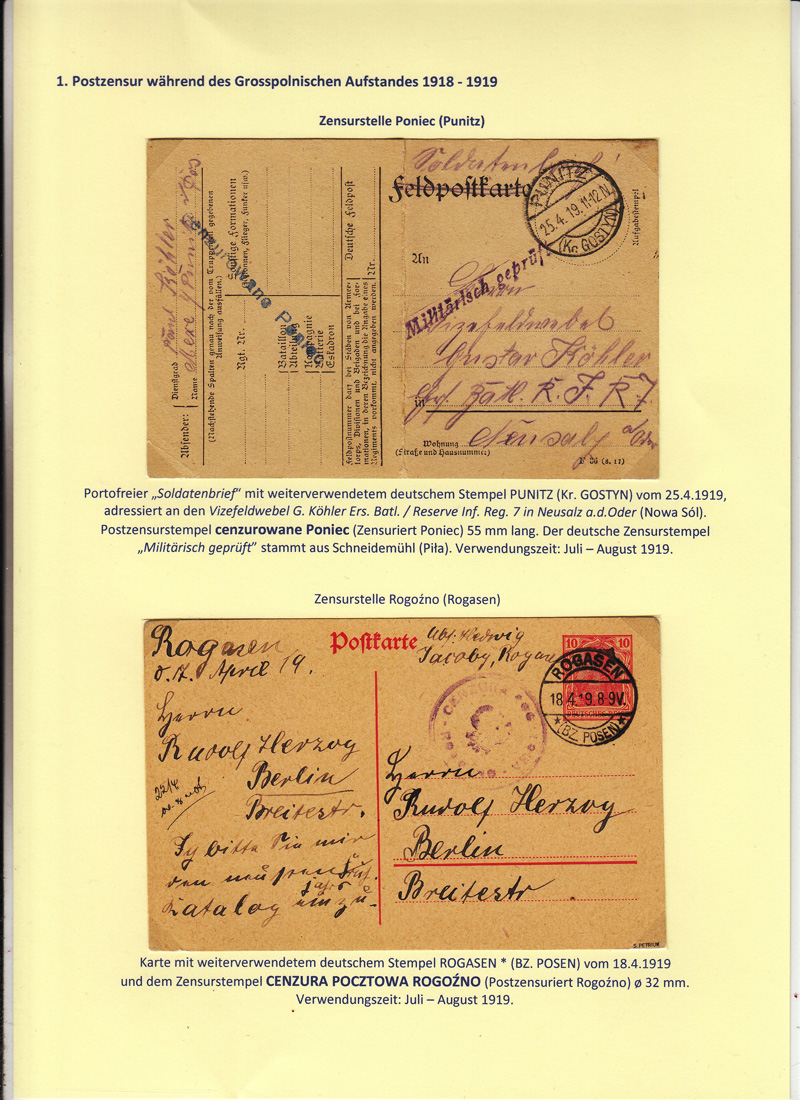 1. Postzensur während des Grosspolnischen Aufstandes 1918 - 1919
Zensurstelle Poniec (Punitz)
Absender:
Dienstgrad
Name
Köhler
(Nachstehende Spalten genau nach der vom Truppenteil gegebenen
Anweisung ausfüllen.)
Rgt. Nr.
Bataillon
Abteilung
Kompagnie
Batterie
Eskadron
Deutsche Feldpost
Nr.
Feldpostnummer darf bei Stäben von Armee-
korps, Divisionen und Brigaden und bei For-
mationen, in deren Bezeichnung die Angabe eines
Regiments vorkommt, nicht angegeben werden.
Feldpostkarte
PUNITZ
25.4.19.11-12N
(Kr. GOSTYN)
Aufgabestempel
Militärisch geprüft
An
Vizefeldwebel
Gustav Köhler
in
Ers. Batl. R. I. R. 7.
Neusalz a/Oder
Wohnung
(Straße und Hausnummer)
Portofreier „Soldatenbrief“ mit weiterverwendetem deutschem Stempel PUNITZ (Kr. GOSTYN) vom 25.4.1919,
adressiert an den Vizefeldwebel G. Köhler Ers. Batl. / Reserve Inf. Reg. 7 in Neusalz a.d.Oder (Nowa Sól).
Postzensurstempel cenzurowane Poniec (Zensuriert Poniec) 55 mm lang. Der deutsche Zensurstempel
„Militärisch geprüft” stammt aus Schneidemühl (Piła). Verwendungszeit: Juli – August 1919.
Zensurstelle Rogoźno (Rogasen)
Rogasen
April 19.
Postkarte
Abs. Hedwig
Jacoby, Rogasen
10 10
ROGASEN
18.4.19.8-9V.
*(BZ. POSEN)*
CENZURA
Herrn
Rudolf Herzog
Berlin
Breitestr.
bitte Sie mir
den
Katalog
Herrn
Rudolf Herzog
Berlin
Breitestr.
S. PETRIUK
Karte mit weiterverwendetem deutschem Stempel ROGASEN * (BZ. POSEN) vom 18.4.1919
und dem Zensurstempel CENZURA POCZTOWA ROGOŹNO (Postzensuriert Rogoźno) ø 32 mm.
Verwendungszeit: Juli – August 1919.